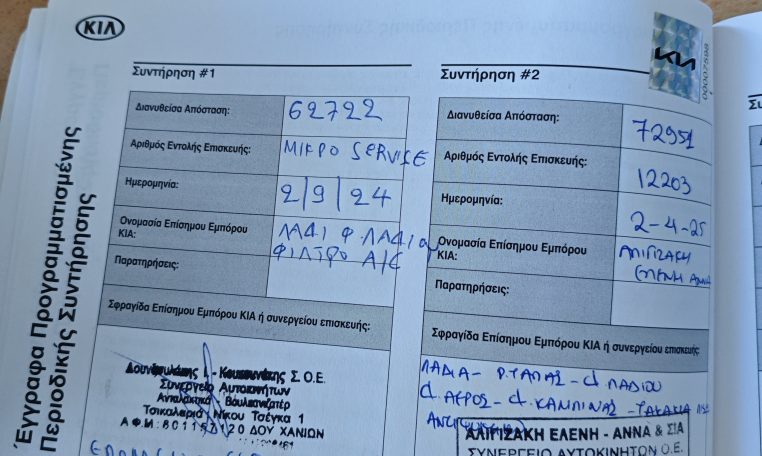 KIA
Έγγραφα Προγραμματισμένης
Περιοδικής Συντήρησης
Συντήρηση #1
Διανυθείσα Απόσταση:
62722
Αριθμός Εντολής Επισκευής:
ΜΙΚΡΟ SERVISE
Ημερομηνία:
2/9/24
Ονομασία Επίσημου Εμπόρου
ΚΙΑ:
ΛΑΔΙ Φ ΛΑΔΙΟΥ
ΦΙΛΤΡΟ A/C
Παρατηρήσεις:
Σφραγίδα Επίσημου Εμπόρου ΚΙΑ ή συνεργείου επισκευής:
Σ.Ο.Ε.
Συνεργείο Αυτοκινήτων
Ανταλλακτικά Βουλκανιζατέρ
Τσικαλαριά Νίκου Τσέγκα 1
ΔΟΥ ΧΑΝΙΩΝ
KIA
00007598
Συντήρηση #2
Διανυθείσα Απόσταση:
72951
Αριθμός Εντολής Επισκευής:
12203
Ημερομηνία:
2-4-25
Ονομασία Επίσημου Εμπόρου
ΚΙΑ:
ΑΛΙΓΙΖΑΚΗ
ΕΛΕΝΗ
Παρατηρήσεις:
Σφραγίδα Επίσημου Εμπόρου ΚΙΑ ή συνεργείου επισκευής:
ΛΑΔΙΑ - Ρ.ΤΑΠΑΣ - Φ ΛΑΔΙΟΥ
Φ.ΑΕΡΟΣ - Φ.ΚΑΜΠΙΝΑΣ - ΤΑΚΑΚΙΑ
ΑΛΙΓΙΖΑΚΗ ΕΛΕΝΗ - ΑΝΝΑ & ΣΙΑ
ΣΥΝΕΡΓΕΙΟ ΑΥΤΟΚΙΝΗΤΩΝ Ο.Ε.